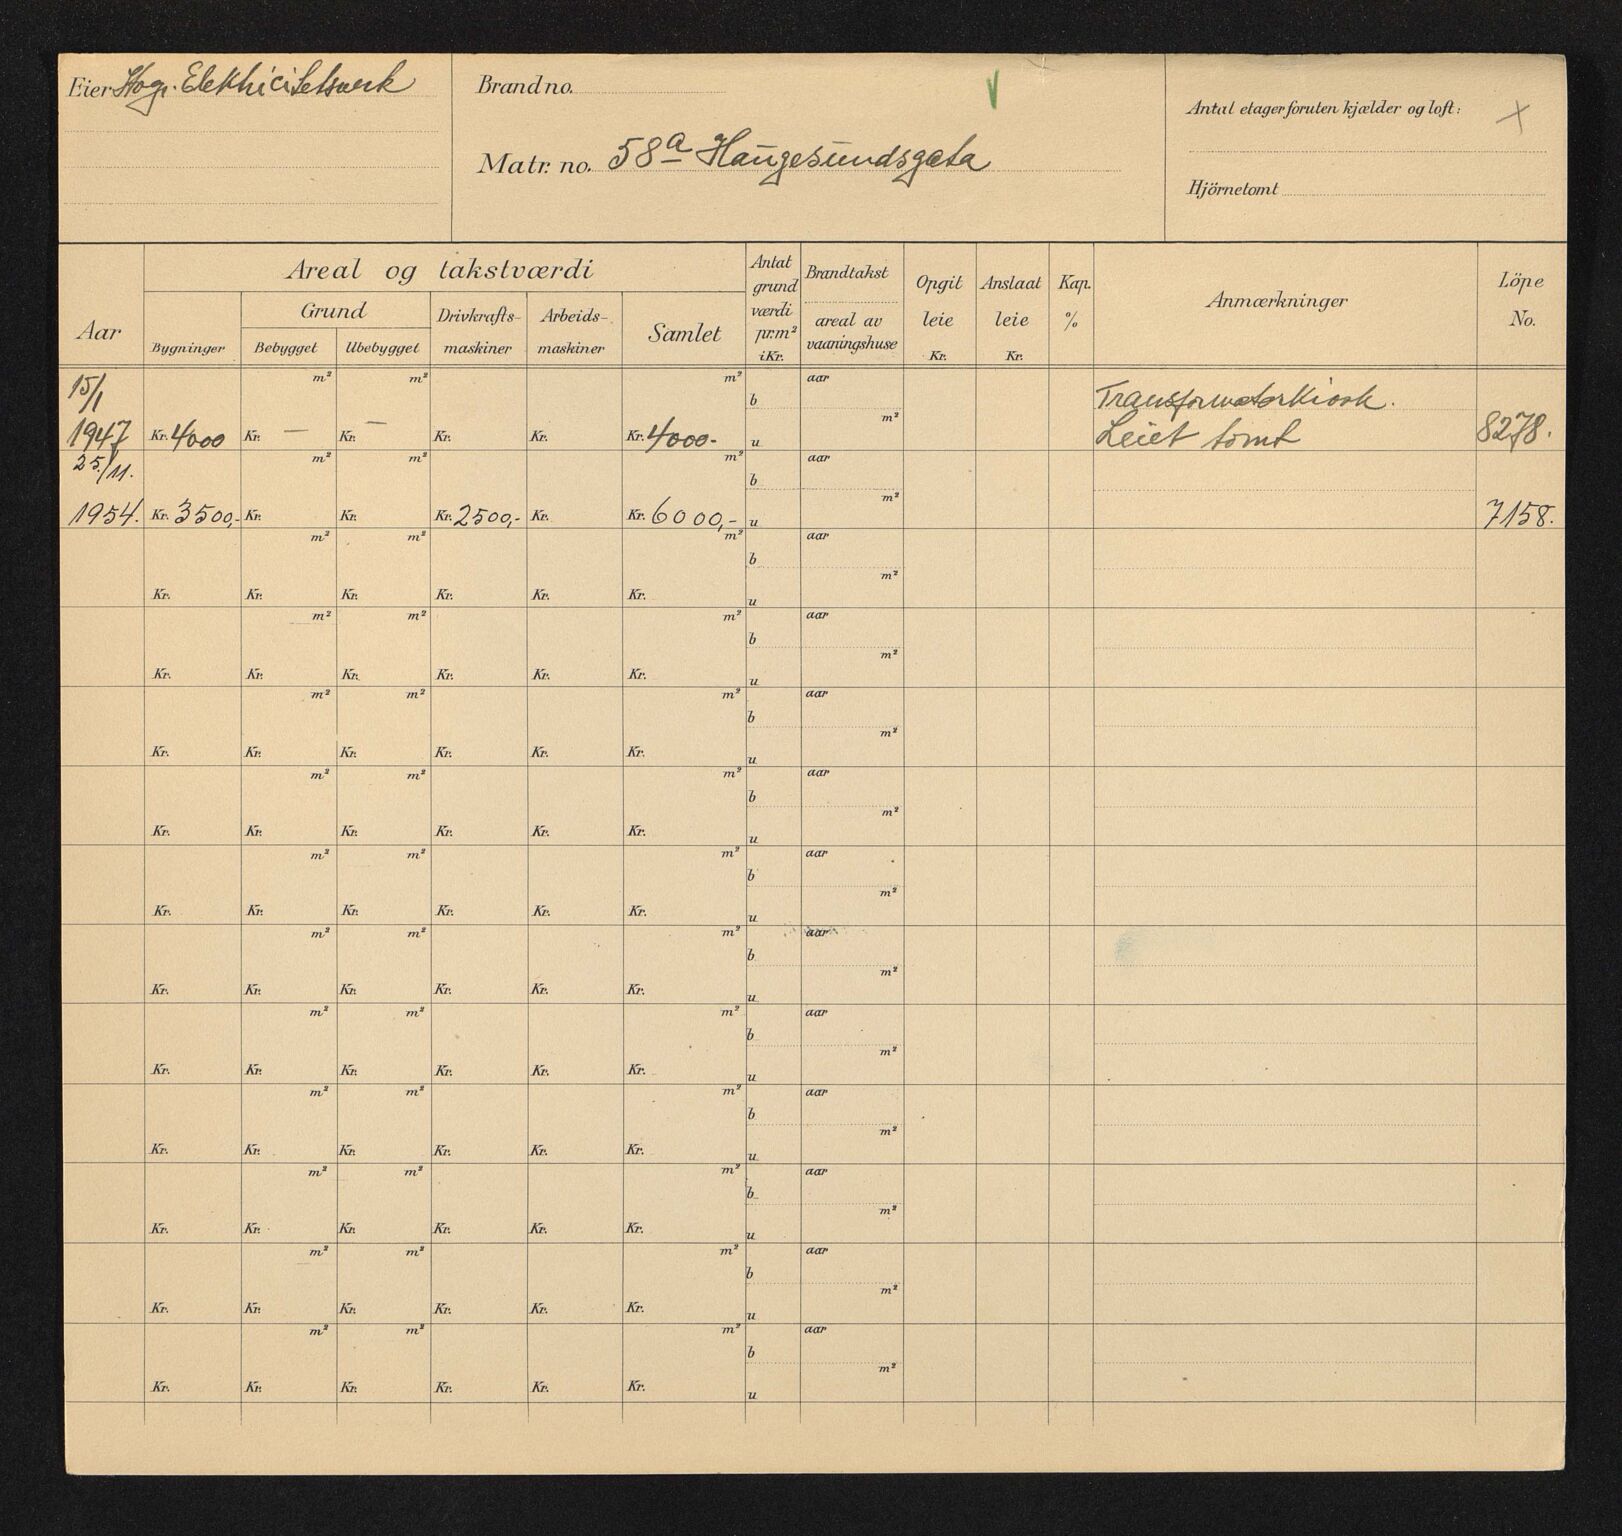 Eier Hog. Elektricitetsverk
Brand no.
Matr. no. 58a Haugesundsgata
Antal etager foruten kjælder og loft: X
Hjörnetomt
Aar
Areal og takstværdi
Grund
Bygninger
Bebygget
Ubebygget
Drivkrafts-
maskiner
Arbeids-
maskiner
Samlet
Antat
grund
værdi
pr. m²
i Kr.
Brandtakst
areal av
vaaningshuse
Opgit
leie
Kr.
Anslaat
leie
Kr.
Kap.
%
Anmærkninger
Löpe
No.
15/1 m² m² m² aar
b Transformatorkiosk.
m²
1947 Kr. 4000 Kr. — Kr. — Kr. Kr. Kr. 4000.- u Leiet tomt 8278.
25./11. m² m² m² aar
b
m²
1954. Kr. 3500,- Kr. Kr. Kr. 2500,- Kr. Kr. 6000,- u 7158.
m² m² m² aar
b
m²
Kr. Kr. Kr. Kr. Kr. Kr. u
m² m² m² aar
b
m²
Kr. Kr. Kr. Kr. Kr. Kr. u
m² m² m² aar
b
m²
Kr. Kr. Kr. Kr. Kr. Kr. u
m² m² m² aar
b
m²
Kr. Kr. Kr. Kr. Kr. Kr. u
m² m² m² aar
b
m²
Kr. Kr. Kr. Kr. Kr. Kr. u
m² m² m² aar
b
m²
Kr. Kr. Kr. Kr. Kr. Kr. u
m² m² m² aar
b
m²
Kr. Kr. Kr. Kr. Kr. Kr. u
m² m² m² aar
b
m²
Kr. Kr. Kr. Kr. Kr. Kr. u
m² m² m² aar
b
m²
Kr. Kr. Kr. Kr. Kr. Kr. u
m² m² m² aar
b
m²
Kr. Kr. Kr. Kr. Kr. Kr. u
m² m² m² aar
b
m²
Kr. Kr. Kr. Kr. Kr. Kr. u